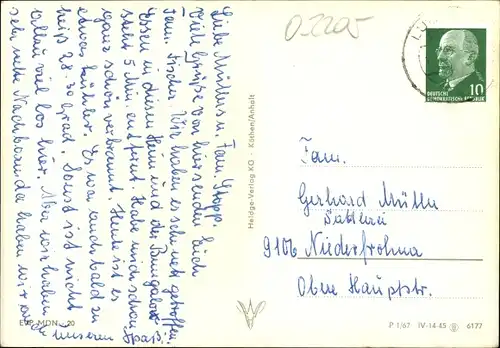 Liebe Müllers u. Fam. Stopp.
Viele Grüße von hier senden Euch
Fam. Fischer. Wir haben es sehr nett getroffen
Essen in diesem Heim und der Bungalow
steht 5 Min. entfernt. Habe mich schon
ganz schön verbrannt. Heute ist es
etwas kühler. Es war auch bald zu
heiß 28-30 Grad. Sonst ist nicht
allzu viel los hier. Aber wir haben
sehr nette Nachbarn da haben wir
unseren Spaß.
EVP MDN -,20
Heldge-Verlag KG · Köthen/Anhalt
02205
10
DEUTSCHE
DEMOKRATISCHE REPUBLIK
Fam.
Gerhard Müller
Sattlerei
9106 Niederfrohna
Obere Hauptstr.
P 1/67 IV-14-45 6177